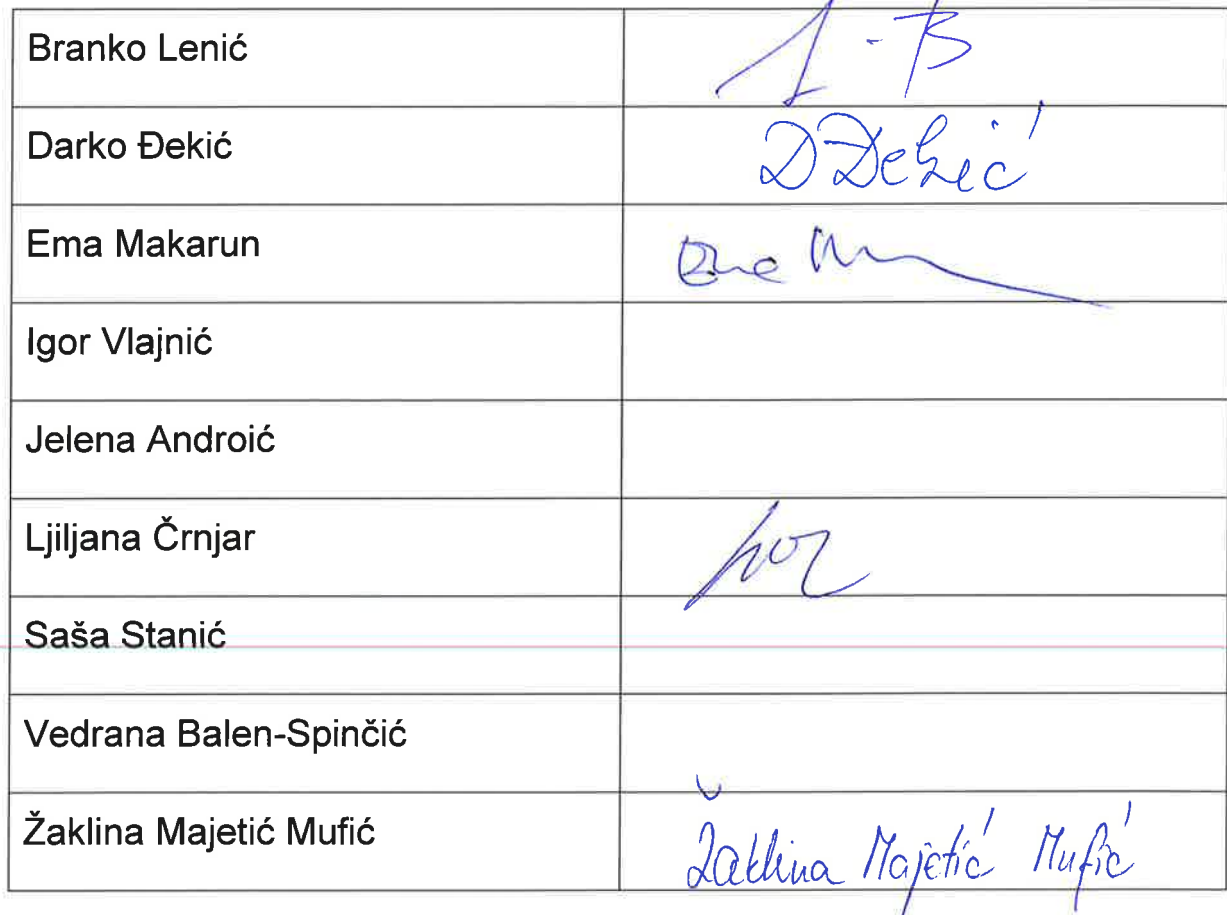 Branko Lenić
Darko Đekić DĐekić
Ema Makarun Ema
Igor Vlajnić
Jelena Androić
Ljiljana Črnjar
Saša Stanić
Vedrana Balen-Spinčić
Žaklina Majetić Mufić Žaklina Majetić Mufić